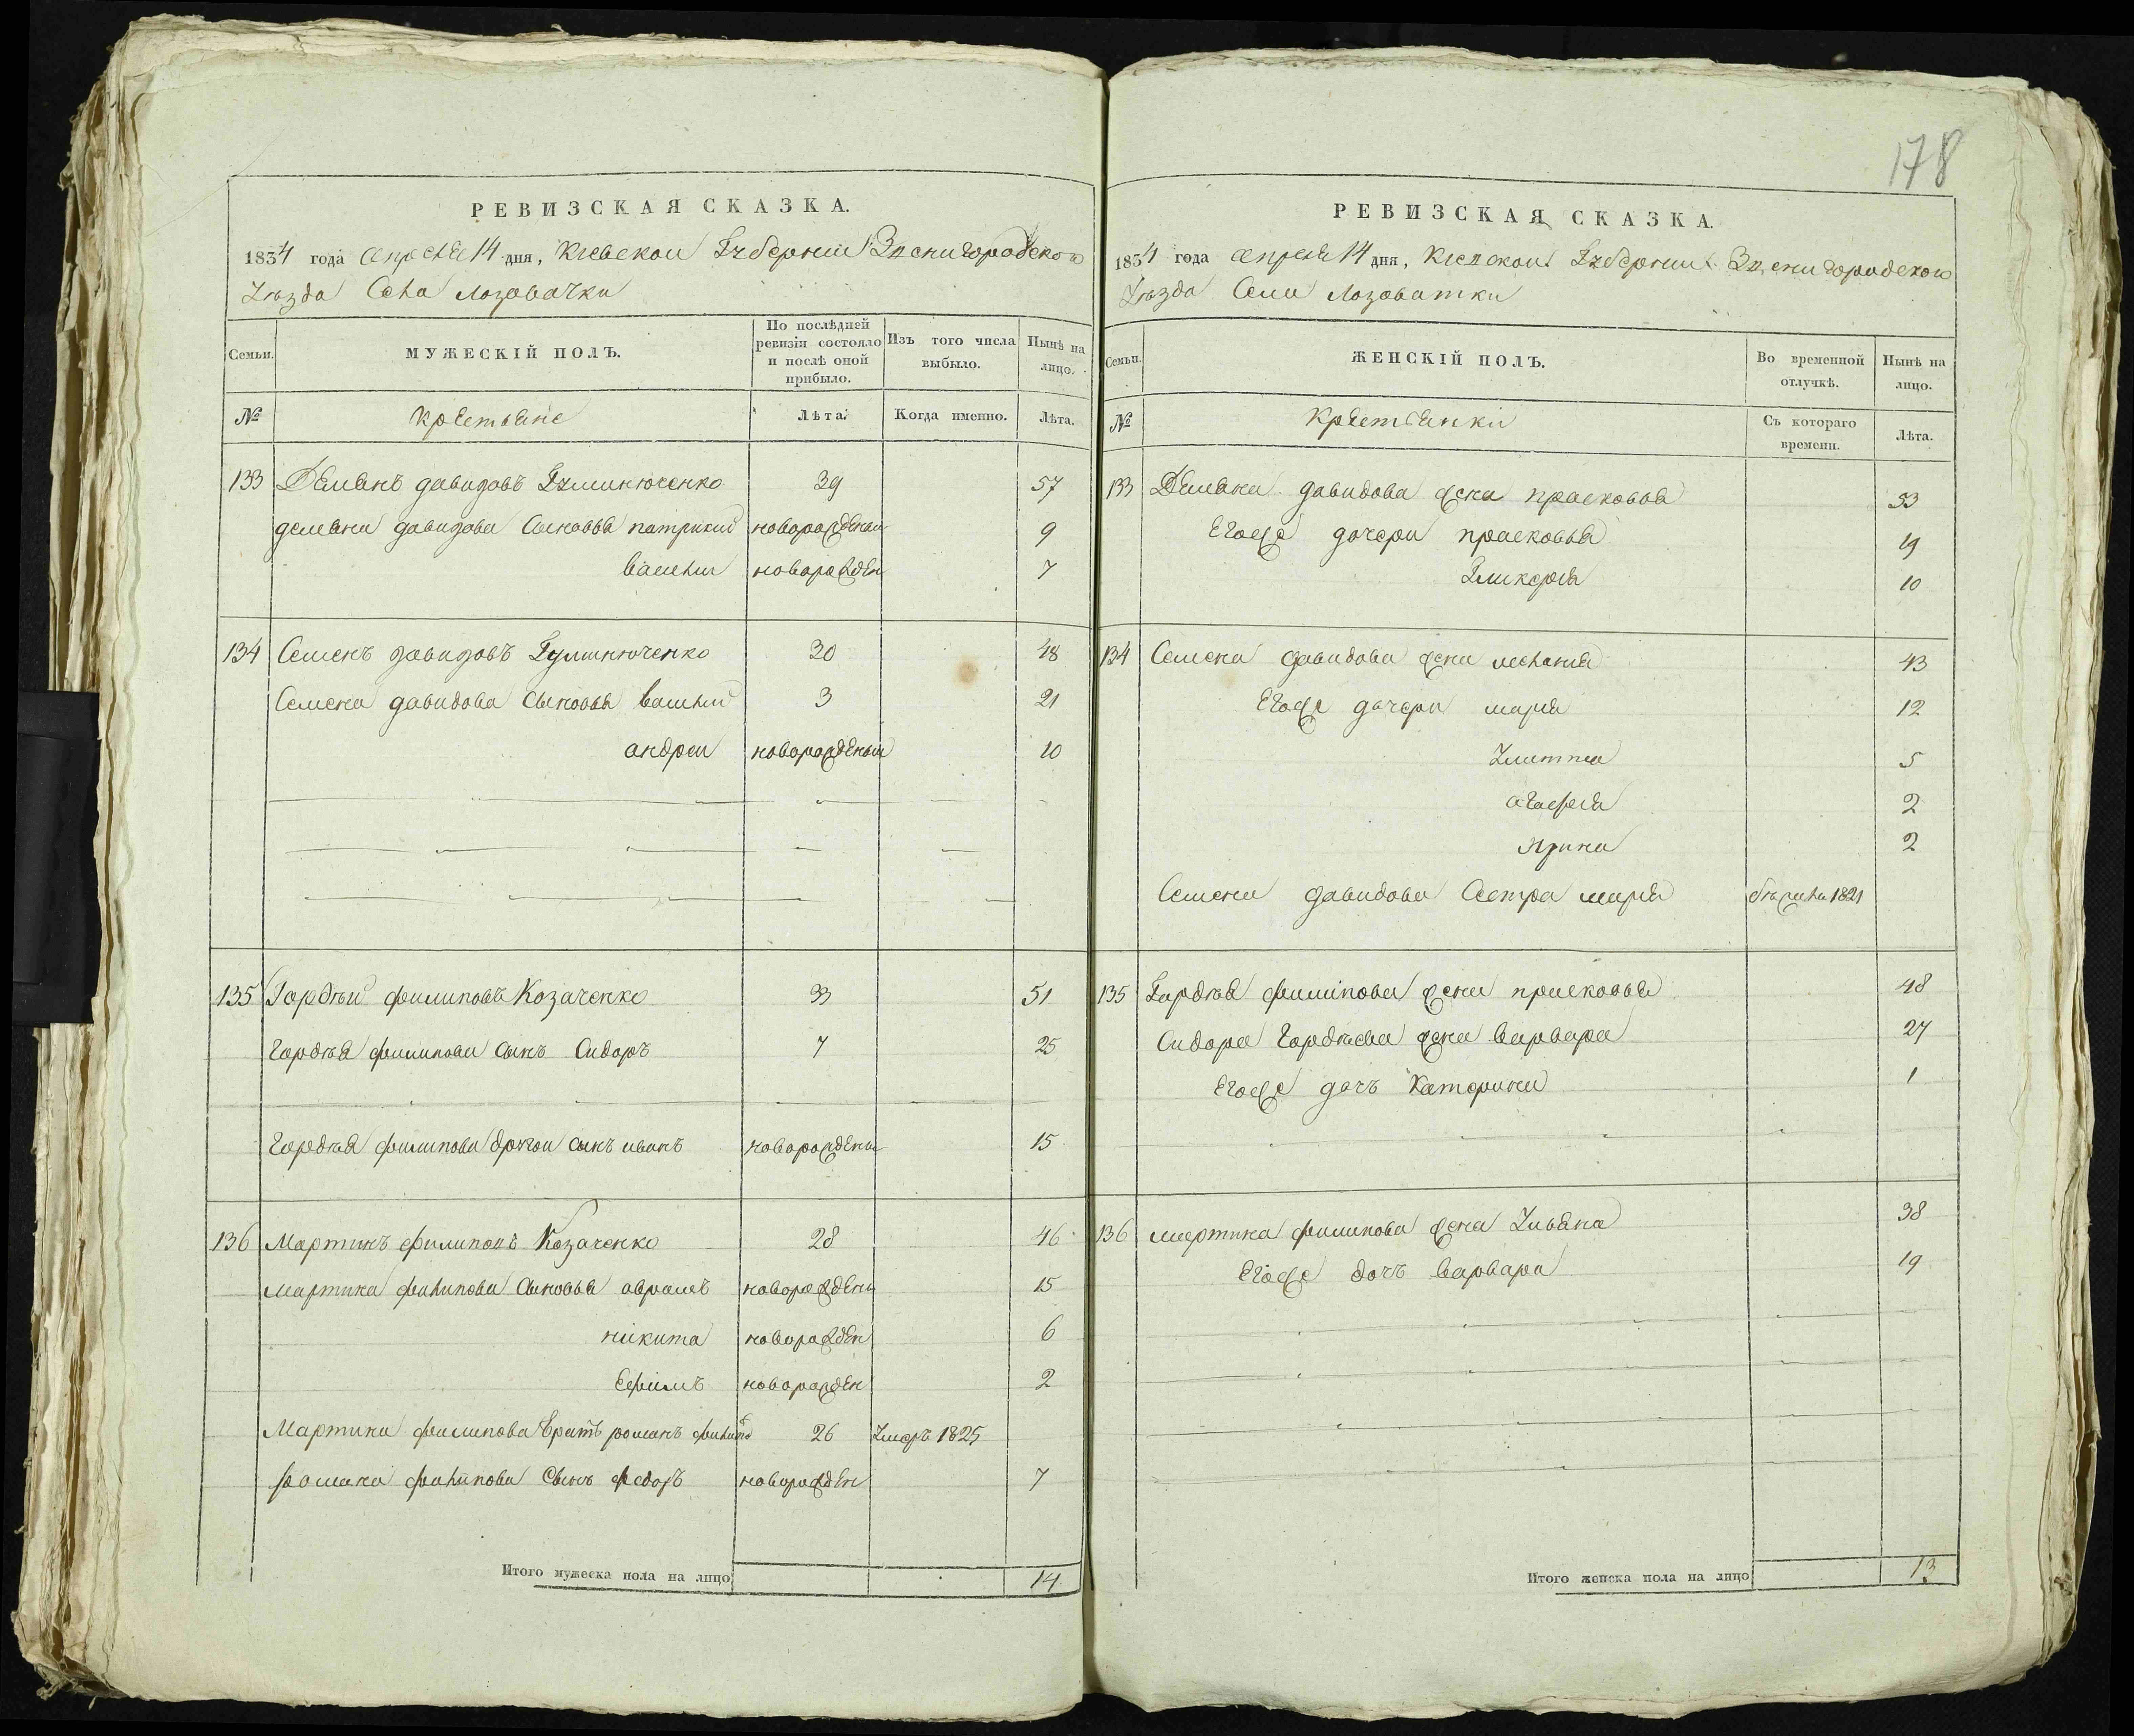 178
РЕВИЗСКАЯ СКАЗКА.
1834 года апреля 14 дня, Киевской Губернии Звенигородского
Уезда Села Лозоватки
Семьи.
МУЖЕСКІЙ ПОЛЪ.
По послѣдней ревизіи состояло и послѣ оной прибыло.
Изъ того числа выбыло.
Нынѣ на лицо.
№
Крестьяне
Лѣта.
Когда именно.
Лѣта.
133 Демянъ давидовъ Гуминюченко 39 57
демяна давидова Сыновья патрикий новорожденый 9
василий новорожден 7
134 Семенъ давидовъ Гуминюченко 30 48
Семена давидова Сыновья василий 3 21
андреи новорожденый 20
135 Гордѣй филиповъ Козаченко 33 51
Гордѣя филипова сынъ Сидоръ 7 25
Гордѣя филипова другои сынъ иванъ новорождены 15
136 Мартинъ филиповъ Козаченко 28 46
мартина филипова Сыновья аврамъ новорождены 15
никита новорожден 6
Ефимъ новорожден 2
Мартина филипова братъ романъ филиповъ 26 Умеръ 1825
романа филипова Сынъ федоръ новорожден 7
Итого мужеска пола на лицо 14
РЕВИЗСКАЯ СКАЗКА.
1834 года апреля 14 дня, Киевской Губернии Звенигородского
Уѣзда Села Лозоватки
Семьи.
ЖЕНСКІЙ ПОЛЪ.
Во временной отлучкѣ.
Нынѣ на лицо.
№
Крестьянки
Съ котораго времени.
Лѣта.
133 Демяна давидова жена прасковья 53
Егоже дочери прасковья 19
Гликерия 10
134 Семена давидова жена мелания 43
Егоже дочери мария 12
Улита 5
агафия 2
Ярина 2
Семена давидова Сестра мария бѣжала 1821
135 Гордѣя филипова жена прасковья 48
Сидора Гордѣева жена варвара 27
Егоже дочъ Катерина 1
136 мартина филипова жена Ульяна 38
Егоже дочъ варвара 19
Итого женска пола на лицо 13